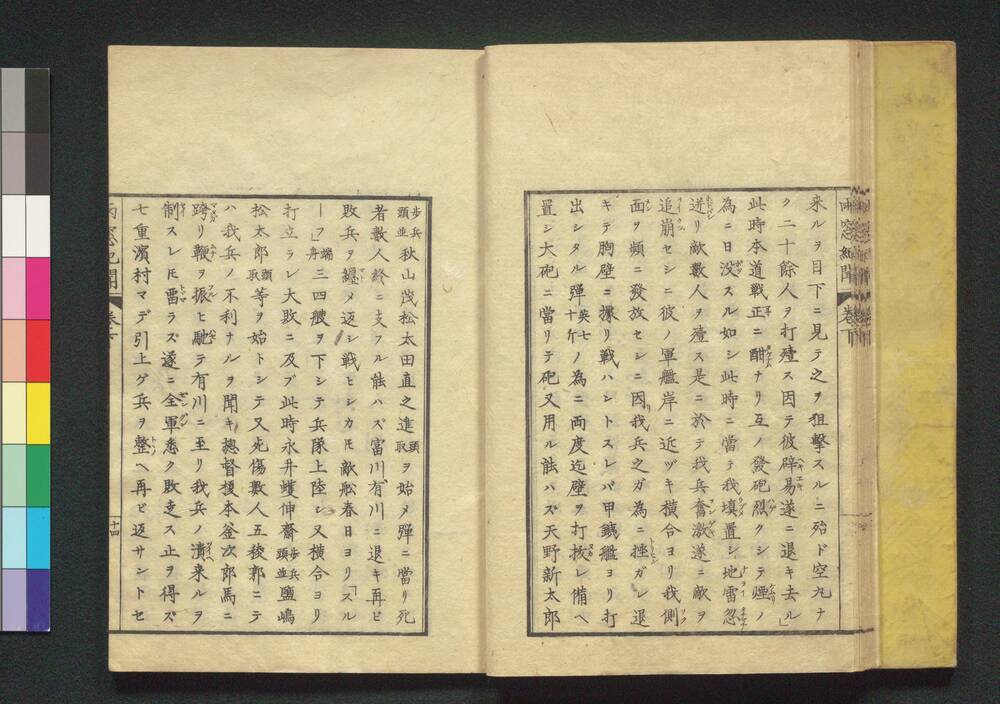 來ルヲ目下ニ見テ之ヲ狙撃スルニ殆ド空丸ナ
ク二十餘人ヲ打殪ス因テ彼辟易遂ニ退キ去ル」
此時本道戰正ニ酣ナリ互ノ發砲烈クシテ煙ノ
為ニ日没スル如シ此時ニ當テ我塡置シ地雷忽
迸リ敵數人ヲ殪ス是ニ於テ我兵奮激遂ニ敵ヲ
追崩セシニ彼ノ軍艦岸ニ近ヅキ横合ヨリ我側
面ヲ頻ニ發放セシニ因我兵之ガ為ニ挫ガレ退
キテ胸壁ニ據リ戰ハントスレバ甲鐵艦ヨリ打
出シタル彈英七十斤ノ為ニ両度迄壁ヲ打抜レ備ヘ
置シ大砲ニ當リテ砲又用ル能ハズ天野新太郎
歩兵頭並秋山茂松太田直之進頭取ヲ始メ彈ニ當リ死
者數人終ニ支フル能ハズ富川有川ニ退キ再ビ
敗兵ヲ纏メ返シ戰ヒシカ𪜈敵舩春日ヨリ「スル
ーフ」端舟三四艘ヲ下シテ兵隊上陸シ又横合ヨリ
打立ラレ大敗ニ及ブ此時永井蠖伸齋歩兵頭並鹽嶋
松太郎頭取等ヲ始トシテ又死傷數人五稜郭ニテ
ハ我兵ノ不利ナルヲ聞キ總督榎本釜次郎馬ニ
跨リ鞭ヲ振ヒ馳テ有川ニ至リ我兵ノ潰来ルヲ
制スレ𪜈畱ラズ遂ニ全軍悉ク敗走ス止ヲ得ズ
七重濱村マデ引上ゲ兵ヲ整ヘ再ビ返サントセ
十四